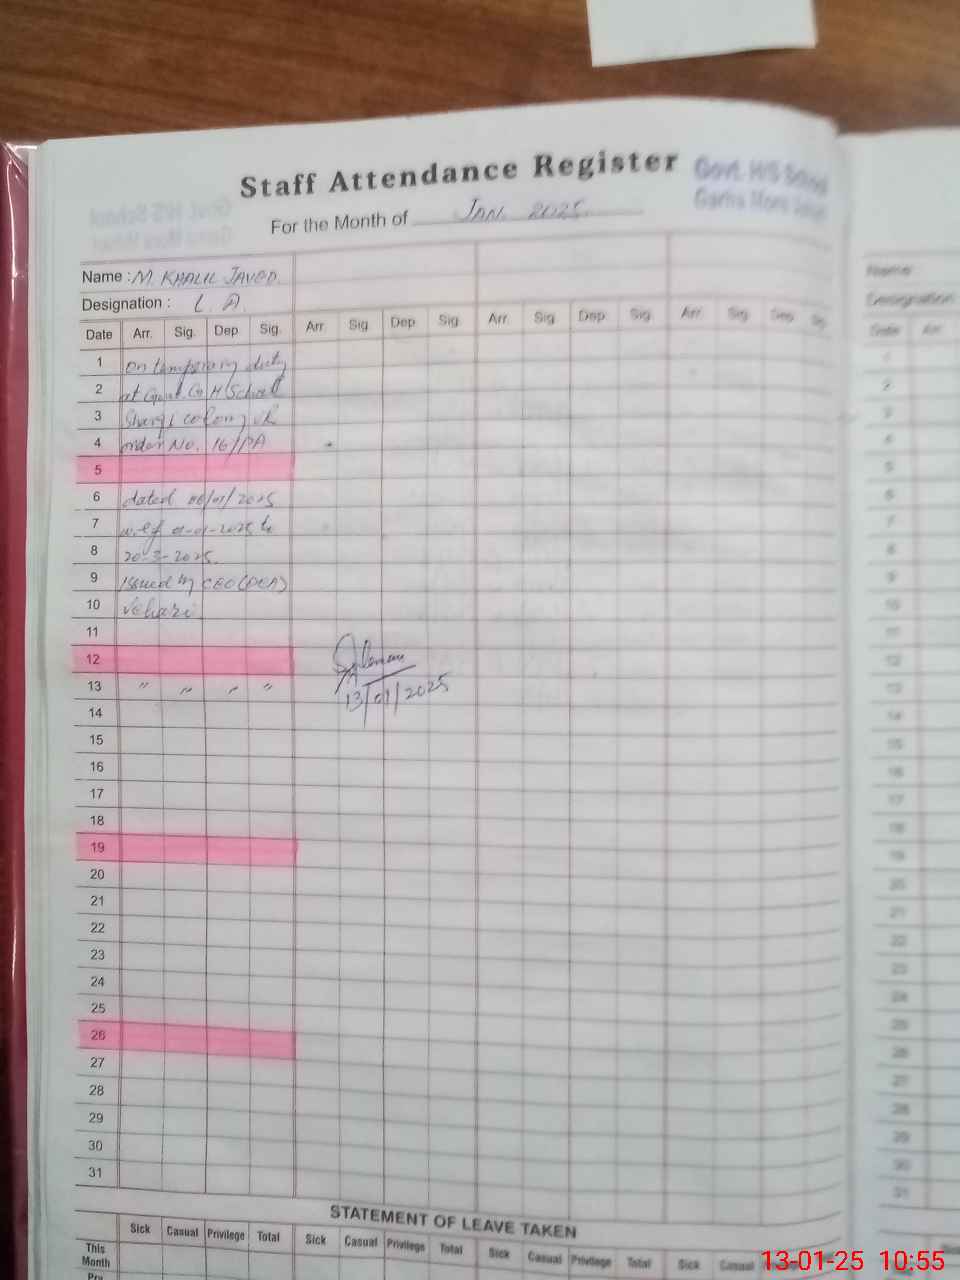 Staff Attendance Register
Govt. H/S School
Garha Mora Vehari
For the Month of JAN. 2025
Name : M. KHALIL JAVED
Designation : L. A.
Date Arr. Sig. Dep Sig. Arr. Sig. Dep. Sig. Arr. Sig. Dep. Sig. Arr. Sig. Dep. Sig.
1 on temporary duty
2 at Govt. G H School
3 Sharqi colony VR
4 order No. 16/PA
5
6 dated 06/01/2025
7 w.e.f 01-01-2025 to
8 20-3-2025.
9 Issued by CEO(DEA)
10 Vehari.
11
12
13 〃 〃 〃 〃
13/01/2025
14
15
16
17
18
19
20
21
22
23
24
25
26
27
28
29
30
31
STATEMENT OF LEAVE TAKEN
Sick Casual Privilege Total Sick Casual Privilege Total Sick Casual Privilege Total Sick Casual
This
Month
Pre
13-01-25 10:55
Name:
Designation
Date Arr.